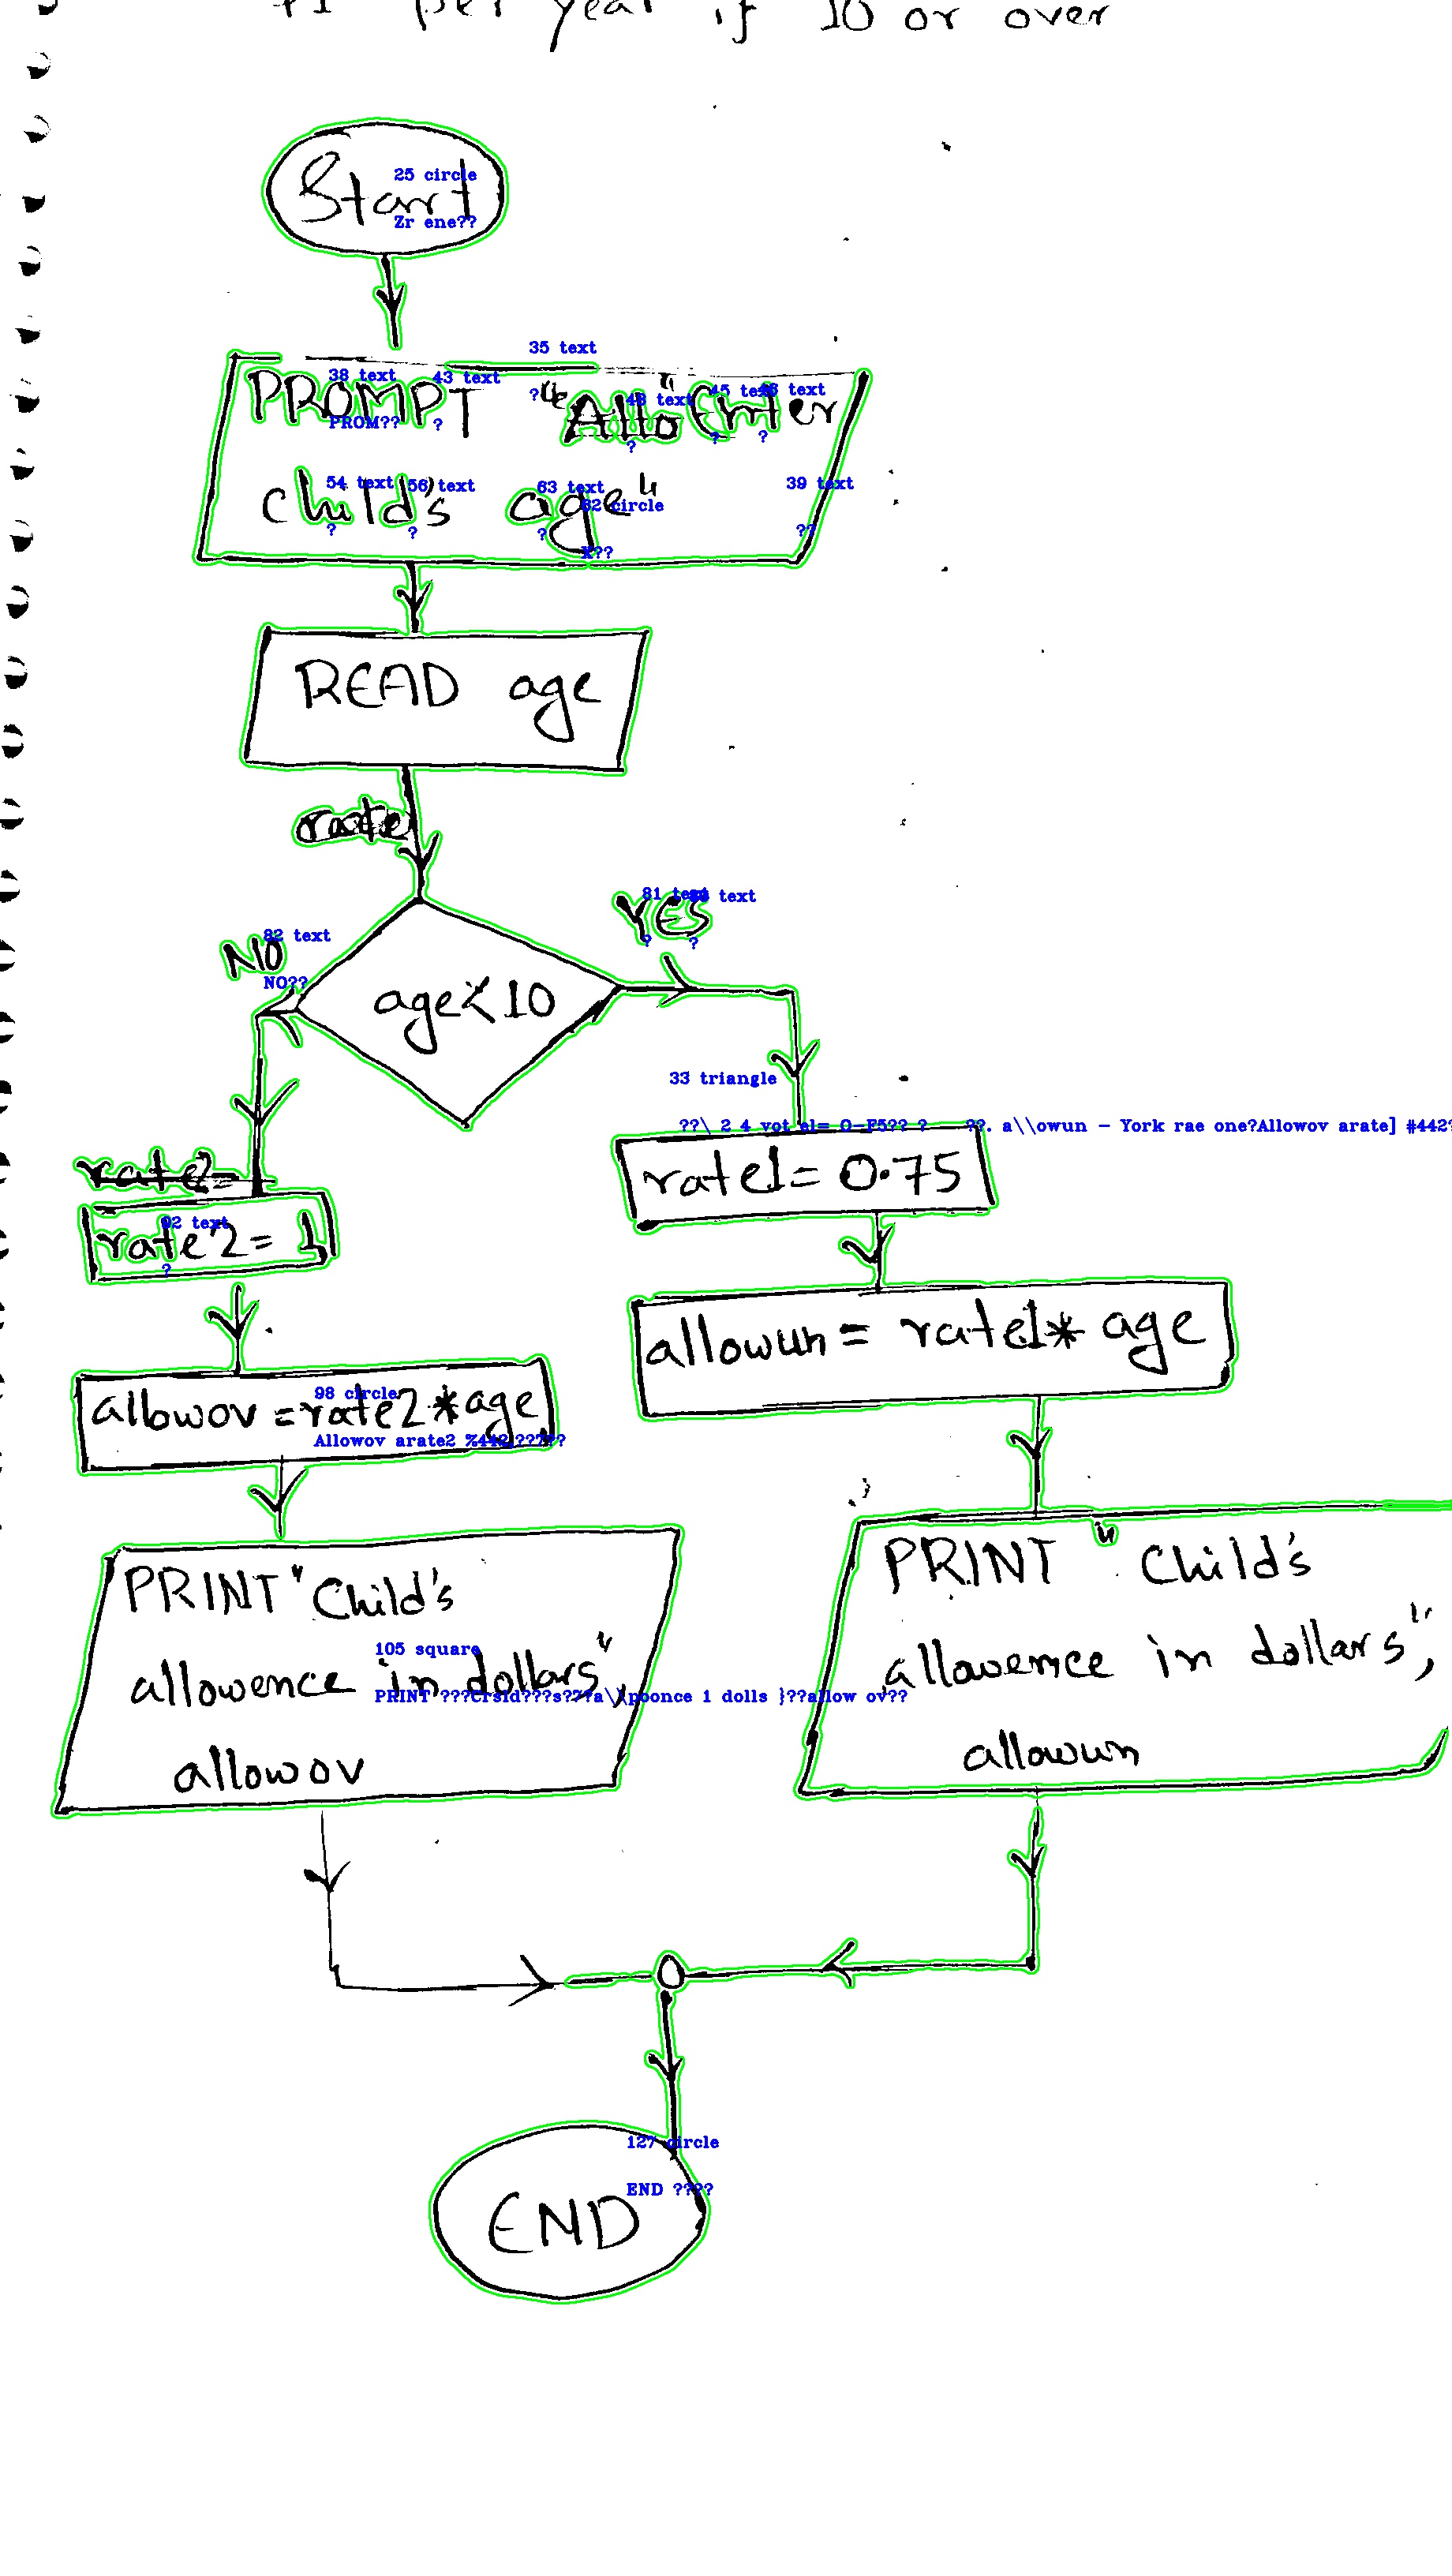 per year if 10 or over
Start
25 circle
Zr ene??
35 text
38 text
43 text
PROMPT "Allo" Enter
48 text
45 text
PROM??
?
?
?
?
?
child's age"
54 text
56 text
63 text
62 circle
39 text
?
?
?
X??
??
READ age
rate
81 text
text
YES
?
?
82 text
NO
NO??
age<10
33 triangle
??\ 2 4 vot el= O-F5?? ? ??. a\\owun - York rae one?Allowov arate] #442?
rate1= 0.75
rate2=
92 text
rate2= 1
?
allowun = rate1* age
98 circle
allowov =rate2*age
Allowov arate2 %442,?????
PRINT "Child's
allowence in dollars",
allowov
105 square
PRINT ???Crsld???s???a\\poonce 1 dolls }??allow ov??
PRINT "Child's
allowence in dollars",
allowun
127 circle
END ????
END